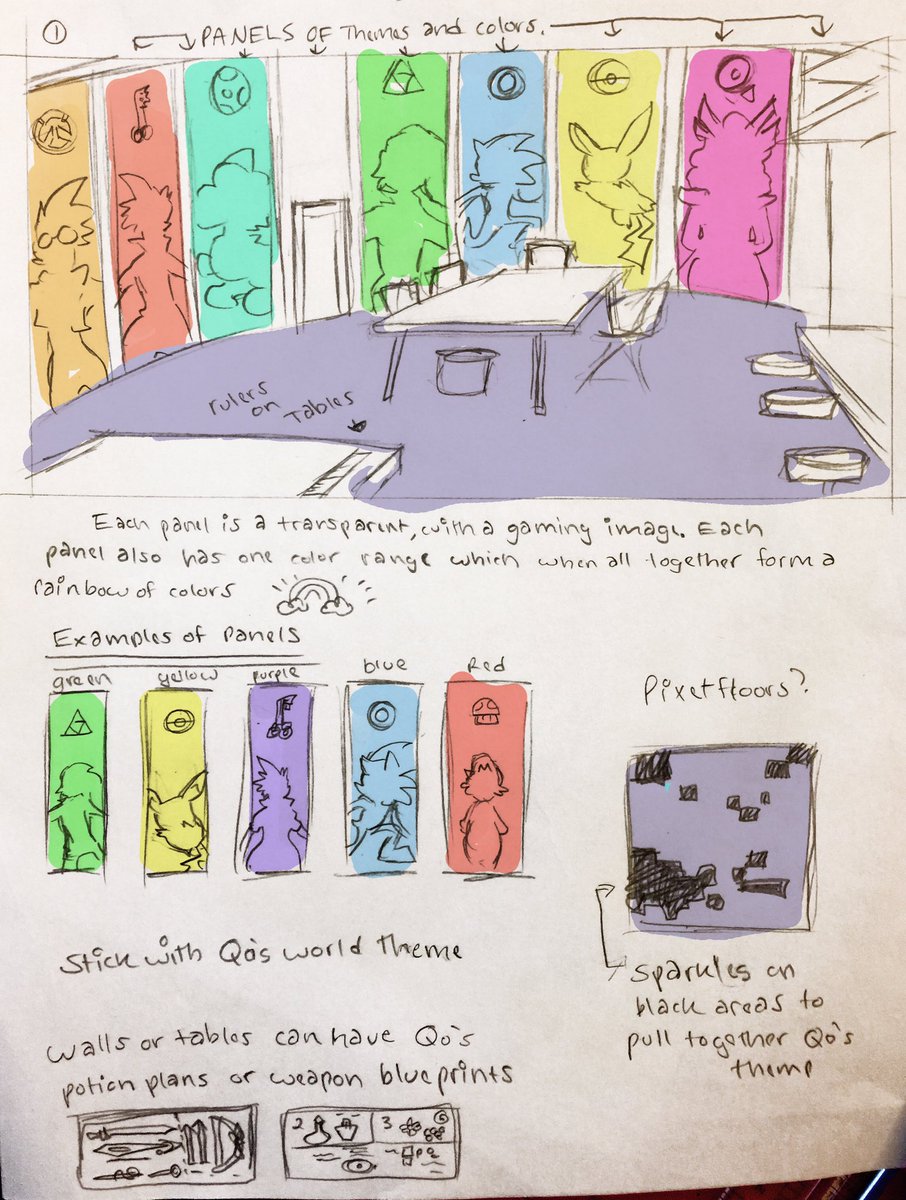 1
PANELS OF Themes and colors.
rulers
on Tables
Each panel is a transparent, with a gaming image. Each
panel also has one color range which when all together form a
rainbow of colors
Examples of Panels
green yellow purple blue Red
M
Pixel floors?
Stick with Qo's world theme
Sparkles on
black areas to
pull together Qo's
theme
walls or tables can have Qo's
potion plans or weapon blueprints
2 3